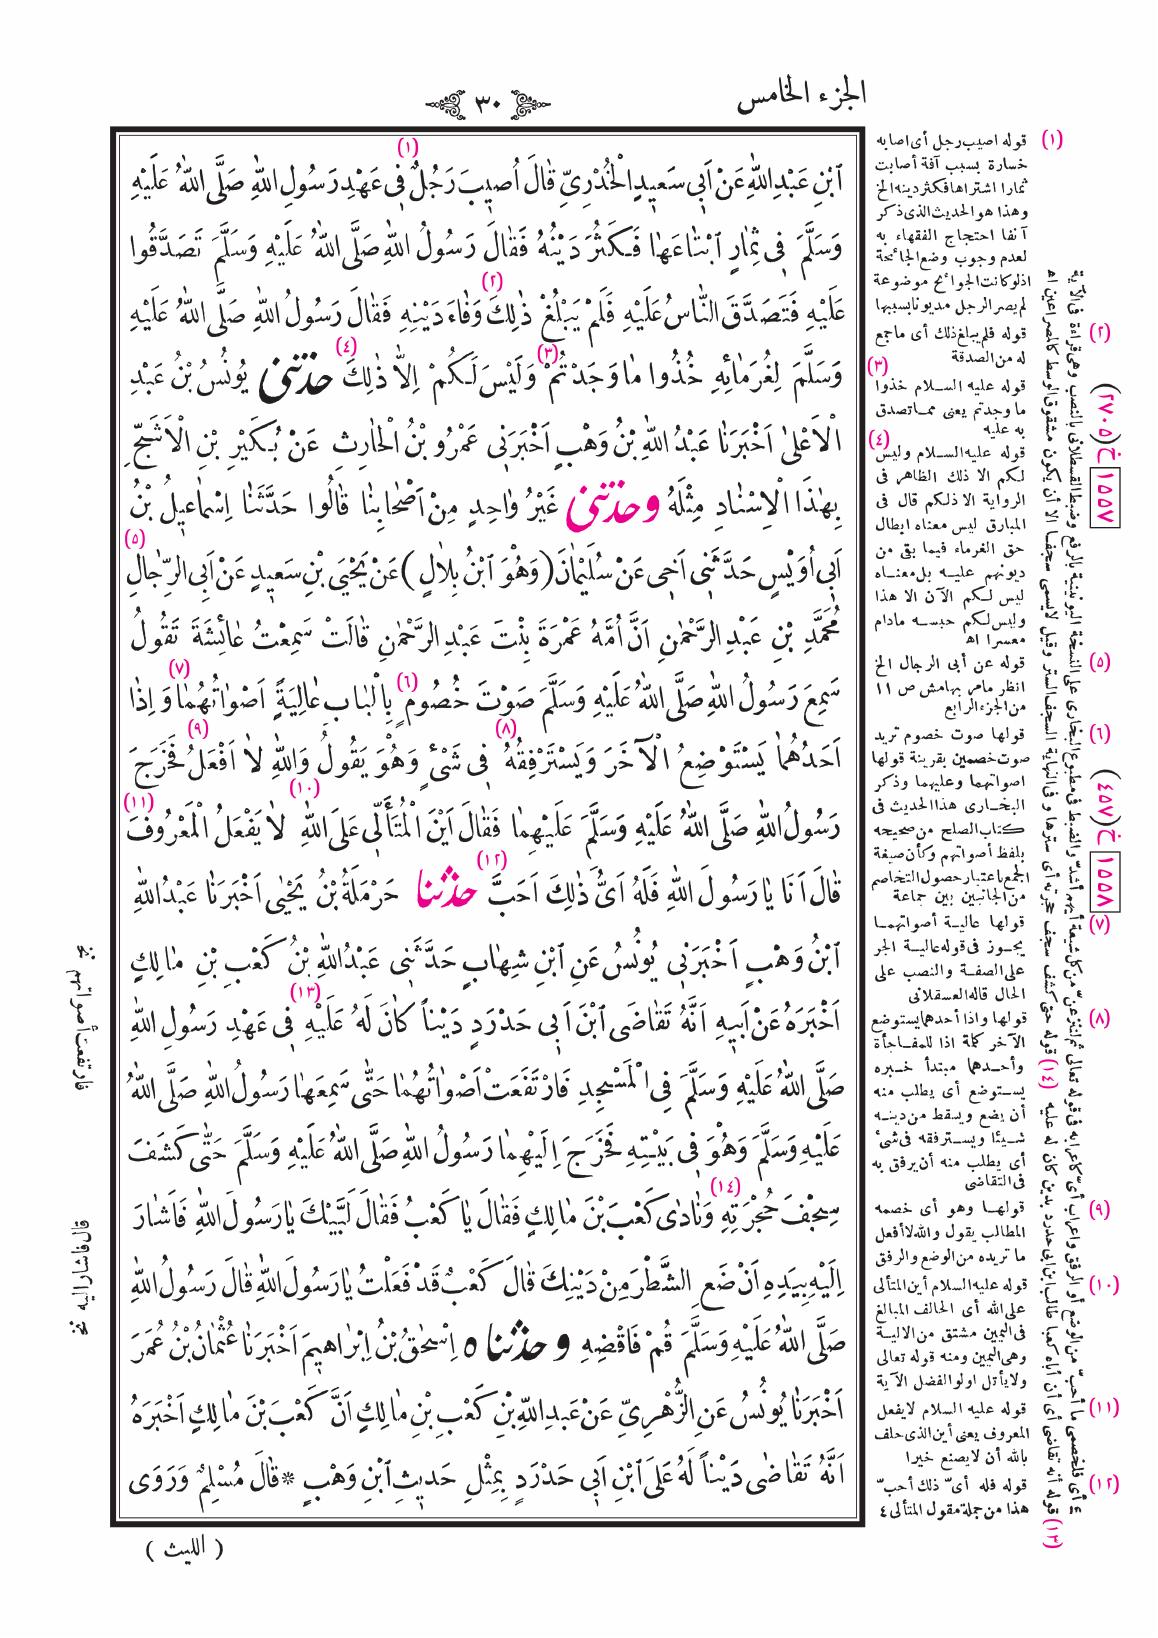 الجزء الخامس
٣٠
(١)
ابْنِ عَبْدِ اللهِ عَنْ أَبِي سَعِيدٍ الْخُدْرِيِّ قَالَ أُصِيبَ رَجُلٌ فِي عَهْدِ رَسُولِ اللهِ صَلَّى اللهُ عَلَيْهِ
وَسَلَّمَ فِي ثِمَارٍ ابْتَاعَهَا فَكَثُرَ دَيْنُهُ فَقَالَ رَسُولُ اللهِ صَلَّى اللهُ عَلَيْهِ وَسَلَّمَ تَصَدَّقُوا
(٢)
عَلَيْهِ فَتَصَدَّقَ النَّاسُ عَلَيْهِ فَلَمْ يَبْلُغْ ذٰلِكَ وَفَاءَ دَيْنِهِ فَقَالَ رَسُولُ اللهِ صَلَّى اللهُ عَلَيْهِ
(٣) (٤)
وَسَلَّمَ لِغُرَمَائِهِ خُذُوا مَا وَجَدْتُمْ وَلَيْسَ لَكُمْ إِلَّا ذٰلِكَ حدثني يُونُسُ بْنُ عَبْدِ
الْأَعْلَى أَخْبَرَنَا عَبْدُ اللهِ بْنُ وَهْبٍ أَخْبَرَنِي عَمْرُو بْنُ الْحَارِثِ عَنْ بُكَيْرِ بْنِ الْأَشَجِّ
بِهٰذَا الْإِسْنَادِ مِثْلَهُ وحدثني غَيْرُ وَاحِدٍ مِنْ أَصْحَابِنَا قَالُوا حَدَّثَنَا إِسْمَاعِيلُ بْنُ
(٥)
أَبِي أُوَيْسٍ حَدَّثَنِي أَخِي عَنْ سُلَيْمَانَ (وَهُوَ ابْنُ بِلَالٍ) عَنْ يَحْيَى بْنِ سَعِيدٍ عَنْ أَبِي الرِّجَالِ
مُحَمَّدِ بْنِ عَبْدِ الرَّحْمٰنِ أَنَّ أُمَّهُ عَمْرَةَ بِنْتَ عَبْدِ الرَّحْمٰنِ قَالَتْ سَمِعْتُ عَائِشَةَ تَقُولُ
(٦) (٧)
سَمِعَ رَسُولُ اللهِ صَلَّى اللهُ عَلَيْهِ وَسَلَّمَ صَوْتَ خُصُومٍ بِالْبَابِ عَالِيَةً أَصْوَاتُهُمَا وَإِذَا
(٨) (٩)
أَحَدُهُمَا يَسْتَوْضِعُ الْآخَرَ وَيَسْتَرْفِقُهُ فِي شَيْءٍ وَهُوَ يَقُولُ وَاللهِ لَا أَفْعَلُ فَخَرَجَ
(١٠) (١١)
رَسُولُ اللهِ صَلَّى اللهُ عَلَيْهِ وَسَلَّمَ عَلَيْهِمَا فَقَالَ أَيْنَ الْمُتَأَلِّي عَلَى اللهِ لَا يَفْعَلُ الْمَعْرُوفَ
(١٢)
قَالَ أَنَا يَا رَسُولَ اللهِ فَلَهُ أَيُّ ذٰلِكَ أَحَبَّ حدثنا حَرْمَلَةُ بْنُ يَحْيَى أَخْبَرَنَا عَبْدُ اللهِ
ابْنُ وَهْبٍ أَخْبَرَنِي يُونُسُ عَنِ ابْنِ شِهَابٍ حَدَّثَنِي عَبْدُ اللهِ بْنُ كَعْبِ بْنِ مَالِكٍ
(١٣)
أَخْبَرَهُ عَنْ أَبِيهِ أَنَّهُ تَقَاضَى ابْنَ أَبِي حَدْرَدٍ دَيْنًا كَانَ لَهُ عَلَيْهِ فِي عَهْدِ رَسُولِ اللهِ
صَلَّى اللهُ عَلَيْهِ وَسَلَّمَ فِي الْمَسْجِدِ فَارْتَفَعَتْ أَصْوَاتُهُمَا حَتَّى سَمِعَهَا رَسُولُ اللهِ صَلَّى اللهُ
عَلَيْهِ وَسَلَّمَ وَهُوَ فِي بَيْتِهِ فَخَرَجَ إِلَيْهِمَا رَسُولُ اللهِ صَلَّى اللهُ عَلَيْهِ وَسَلَّمَ حَتَّى كَشَفَ
(١٤)
سِجْفَ حُجْرَتِهِ وَنَادَى كَعْبَ بْنَ مَالِكٍ فَقَالَ يَا كَعْبُ فَقَالَ لَبَّيْكَ يَا رَسُولَ اللهِ فَأَشَارَ
إِلَيْهِ بِيَدِهِ أَنْ ضَعِ الشَّطْرَ مِنْ دَيْنِكَ قَالَ كَعْبٌ قَدْ فَعَلْتُ يَا رَسُولَ اللهِ قَالَ رَسُولُ اللهِ
صَلَّى اللهُ عَلَيْهِ وَسَلَّمَ قُمْ فَاقْضِهِ وحدثناه إِسْحٰقُ بْنُ إِبْرَاهِيمَ أَخْبَرَنَا عُثْمَانُ بْنُ عُمَرَ
أَخْبَرَنَا يُونُسُ عَنِ الزُّهْرِيِّ عَنْ عَبْدِ اللهِ بْنِ كَعْبِ بْنِ مَالِكٍ أَنَّ كَعْبَ بْنَ مَالِكٍ أَخْبَرَهُ
أَنَّهُ تَقَاضَى دَيْنًا لَهُ عَلَى ابْنِ أَبِي حَدْرَدٍ بِمِثْلِ حَدِيثِ ابْنِ وَهْبٍ * قَالَ مُسْلِمٌ وَرَوَى
( الليث )
(١) قوله اصيب رجل أى اصابه
خسارة بسبب آفة أصابت
ثمارا اشتراها فكثر دينه الخ
وهذا هو الحديث الذى ذكر
آنفا احتجاج الفقهاء به
لعدم وجوب وضع الجائحة
اذ لو كانت الجوائح موضوعة
لم يصر الرجل مديونا بسببها
(٢) قوله فلم يبلغ ذلك أى ماجمع
له من الصدقة
(٣) قوله عليه السلام خذوا
ما وجدتم يعنى مما تصدق
به عليه
(٤) قوله عليه السلام وليس
لكم الا ذلك الظاهر فى
الرواية الا ذلكم قال فى
المبارق ليس معناه ابطال
حق الغرماء فيما بقى من
ديونهم عليه بل معناه
ليس لكم الآن الا هذا
وليس لكم حبسه مادام
معسرا اه
(٥) قوله عن أبى الرجال الخ
انظر مامر بهامش ص ١١
من الجزء الرابع
(٦) قولها صوت خصوم تريد
صوت خصمين بقرينة قولها
اصواتهما وعليهما وذكر
البخارى هذا الحديث فى
كتاب الصلح من صحيحه
بلفظ أصواتهم وكأن صيغة
الجمع باعتبار حصول التخاصم
من الجانبين بين جماعة
(٧) قولها عالية أصواتهما
يجوز فى قوله عالية الجر
على الصفة والنصب على
الحال قاله العسقلانى
(٨) قولها واذا أحدهما يستوضع
الآخر كلمة اذا للمفاجأة
وأحدهما مبتدأ خبره
يستوضع أى يطلب منه
أن يضع ويسقط من دينه
شيئا ويسترفقه فى شىء
أى يطلب منه أن يرفق به
فى التقاضى
(٩) قولها وهو أى خصمه
المطالب يقول والله لا أفعل
ما تريده من الوضع والرفق
(١٠) قوله عليه السلام أين المتألى
على الله أى الحالف المبالغ
فى اليمين مشتق من الالية
وهى اليمين ومنه قوله تعالى
ولا يأتل اولو الفضل الآية
(١١) قوله عليه السلام لا يفعل
المعروف يعنى أين الذى حلف
بالله أن لا يصنع خيرا
(١٢) قوله فله أىّ ذلك أحبّ
هذا من جملة مقول المتألى ٤
٤ أى فلخصمى ما أحبّ من الوضع أو الرفق واعراب أىّ كاعرابه فى قوله تعالى ثم لننزعنّ من كل شيعة أيهم أشدّ والضبط فى مطبوع البخارى على النسخة اليونينية بالرفع وضبط القسطلانى بالنصب وهى قراءة فى الآية
(١٣) قوله أنه تقاضى أى أن أباه كعبا طالب ابن ابى حدرد بدين كان له عليه (١٤) قوله حتى كشف سجف حجرته أى سترها وفى النهاية السجف الستر وقيل لا يسمى سجفا الا أن يكون مشقوق الوسط كالمصراعين اه
١٥٥٧ خ (٢٧٠٥)
١٥٥٨ خ (٤٥٧)
فارتفعت أصواتهم نخ
قال فأشار اليه نخ